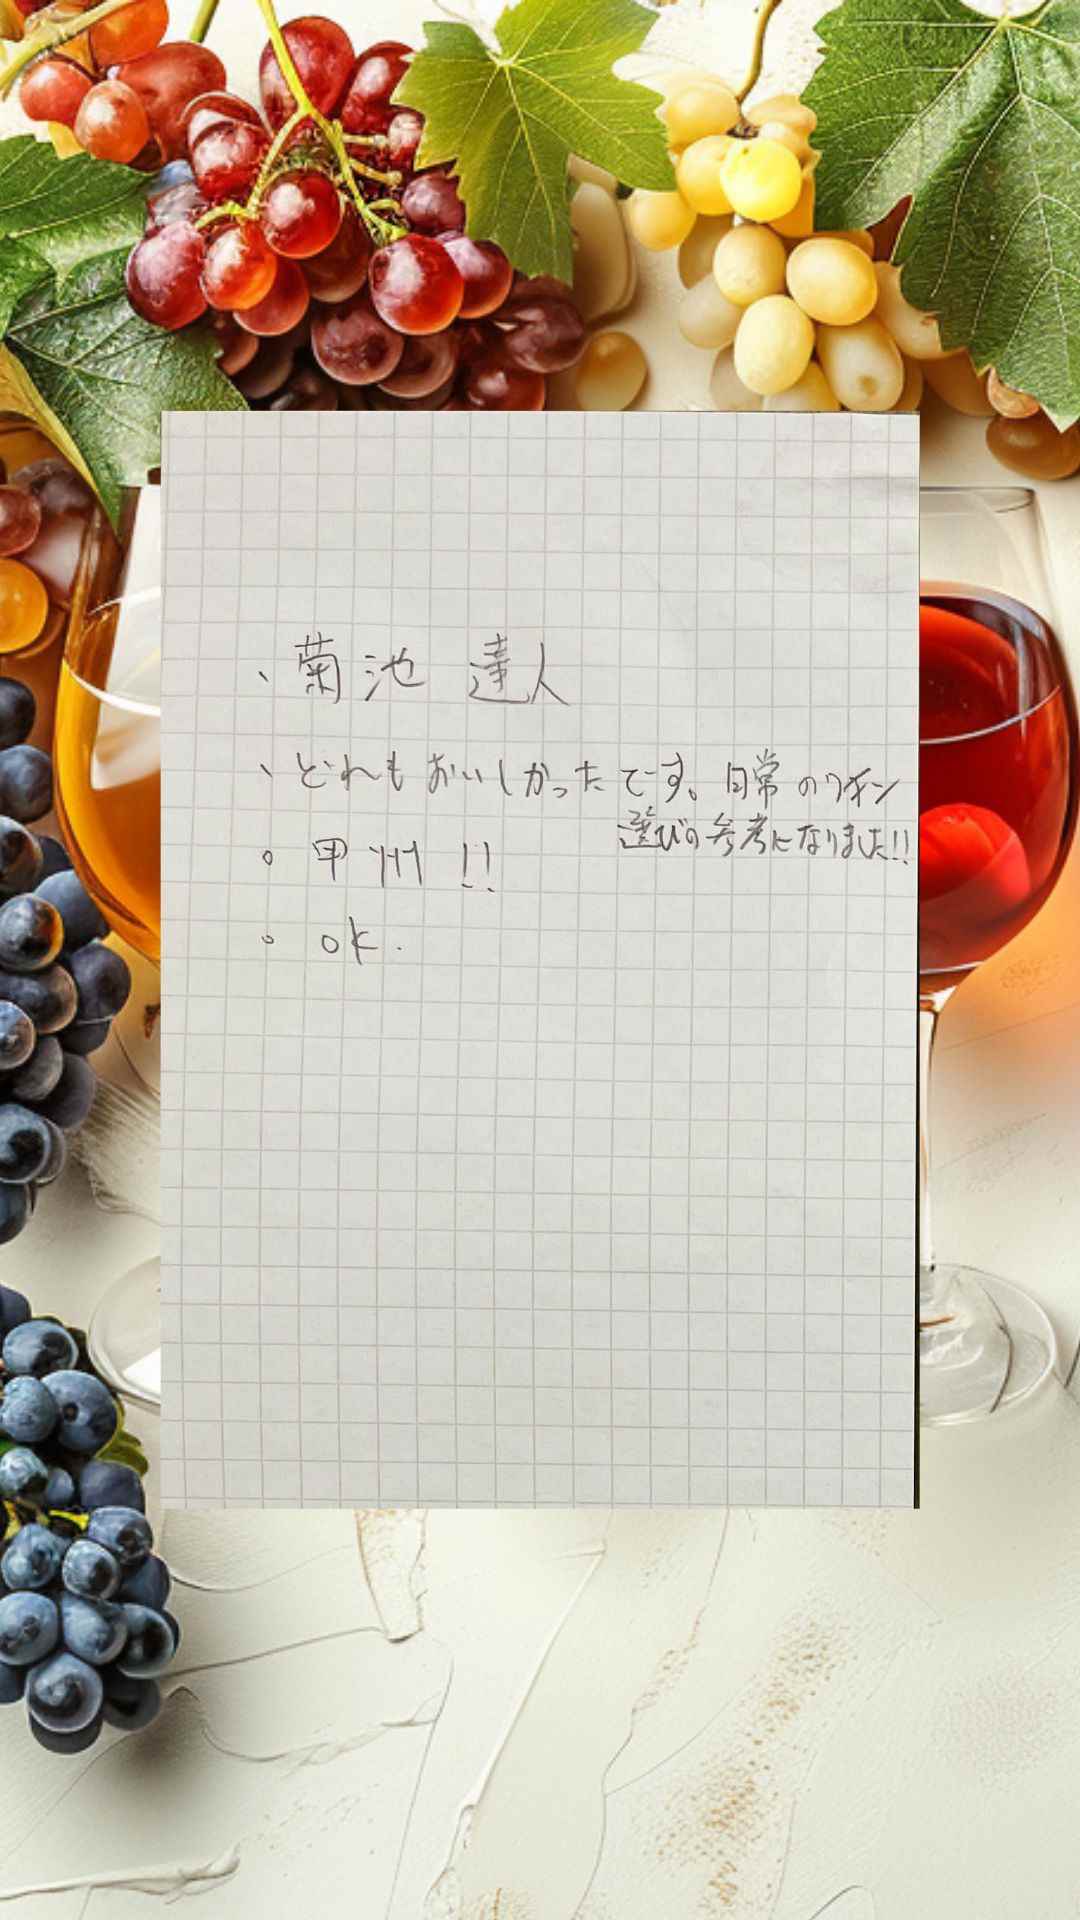 、菊池 達人
、どれもおいしかったです。日常のワイン
選びの参考になりました!!
。甲州!!
。OK.